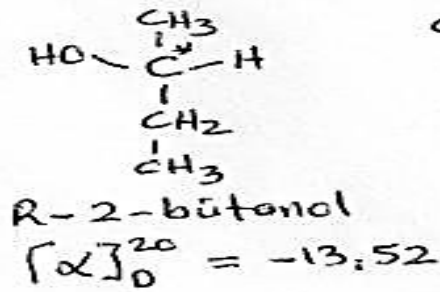 CH3
HO C* H
CH2
CH3
R-2-bütanol
[α]D20 = -13,52